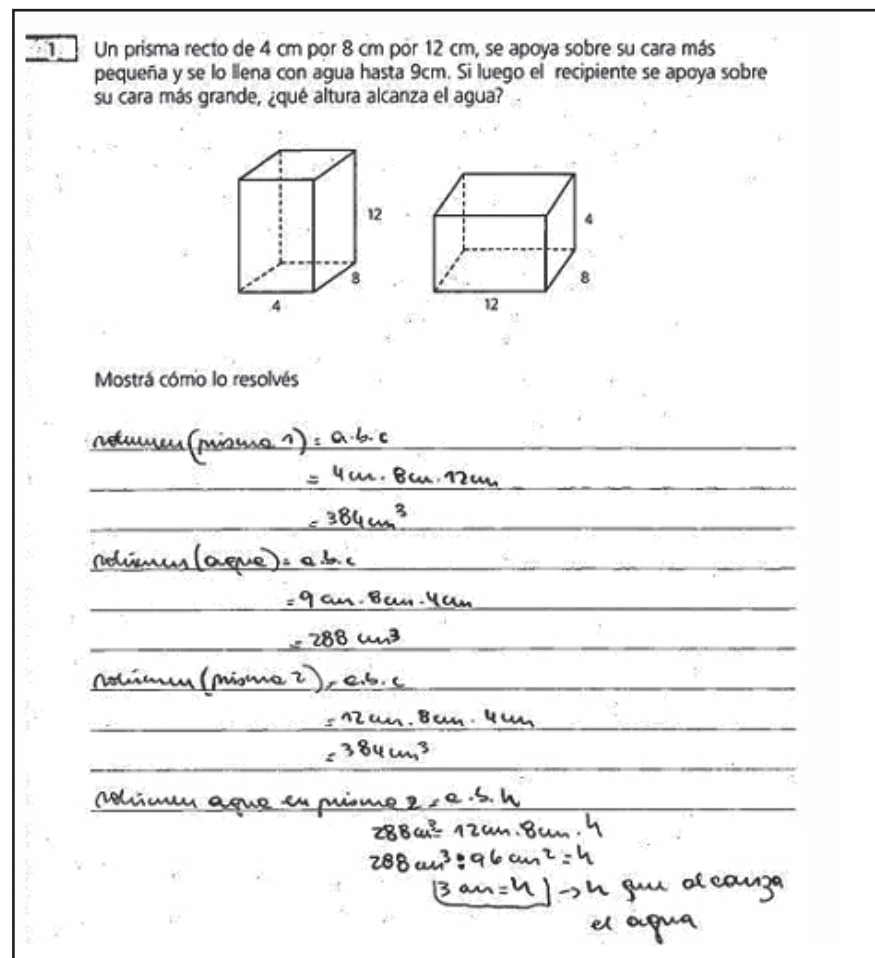 1 Un prisma recto de 4 cm por 8 cm por 12 cm, se apoya sobre su cara más
pequeña y se lo llena con agua hasta 9cm. Si luego el recipiente se apoya sobre
su cara más grande, ¿qué altura alcanza el agua?
12
8
4
4
8
12
Mostrá cómo lo resolvés
volumen (prisma 1) = a.b.c
= 4cm. 8cm. 12cm
= 384cm³
volumen (agua) = a.b.c
= 9 cm. 8cm. 4cm
= 288 cm³
volumen (prisma 2) = a.b.c
= 12cm. 8cm. 4cm
= 384cm³
volumen agua en prisma 2 = a.b.h
288cm³ = 12cm. 8cm. h
288cm³ : 96cm² = h
3 cm = h → h que alcanza
el agua